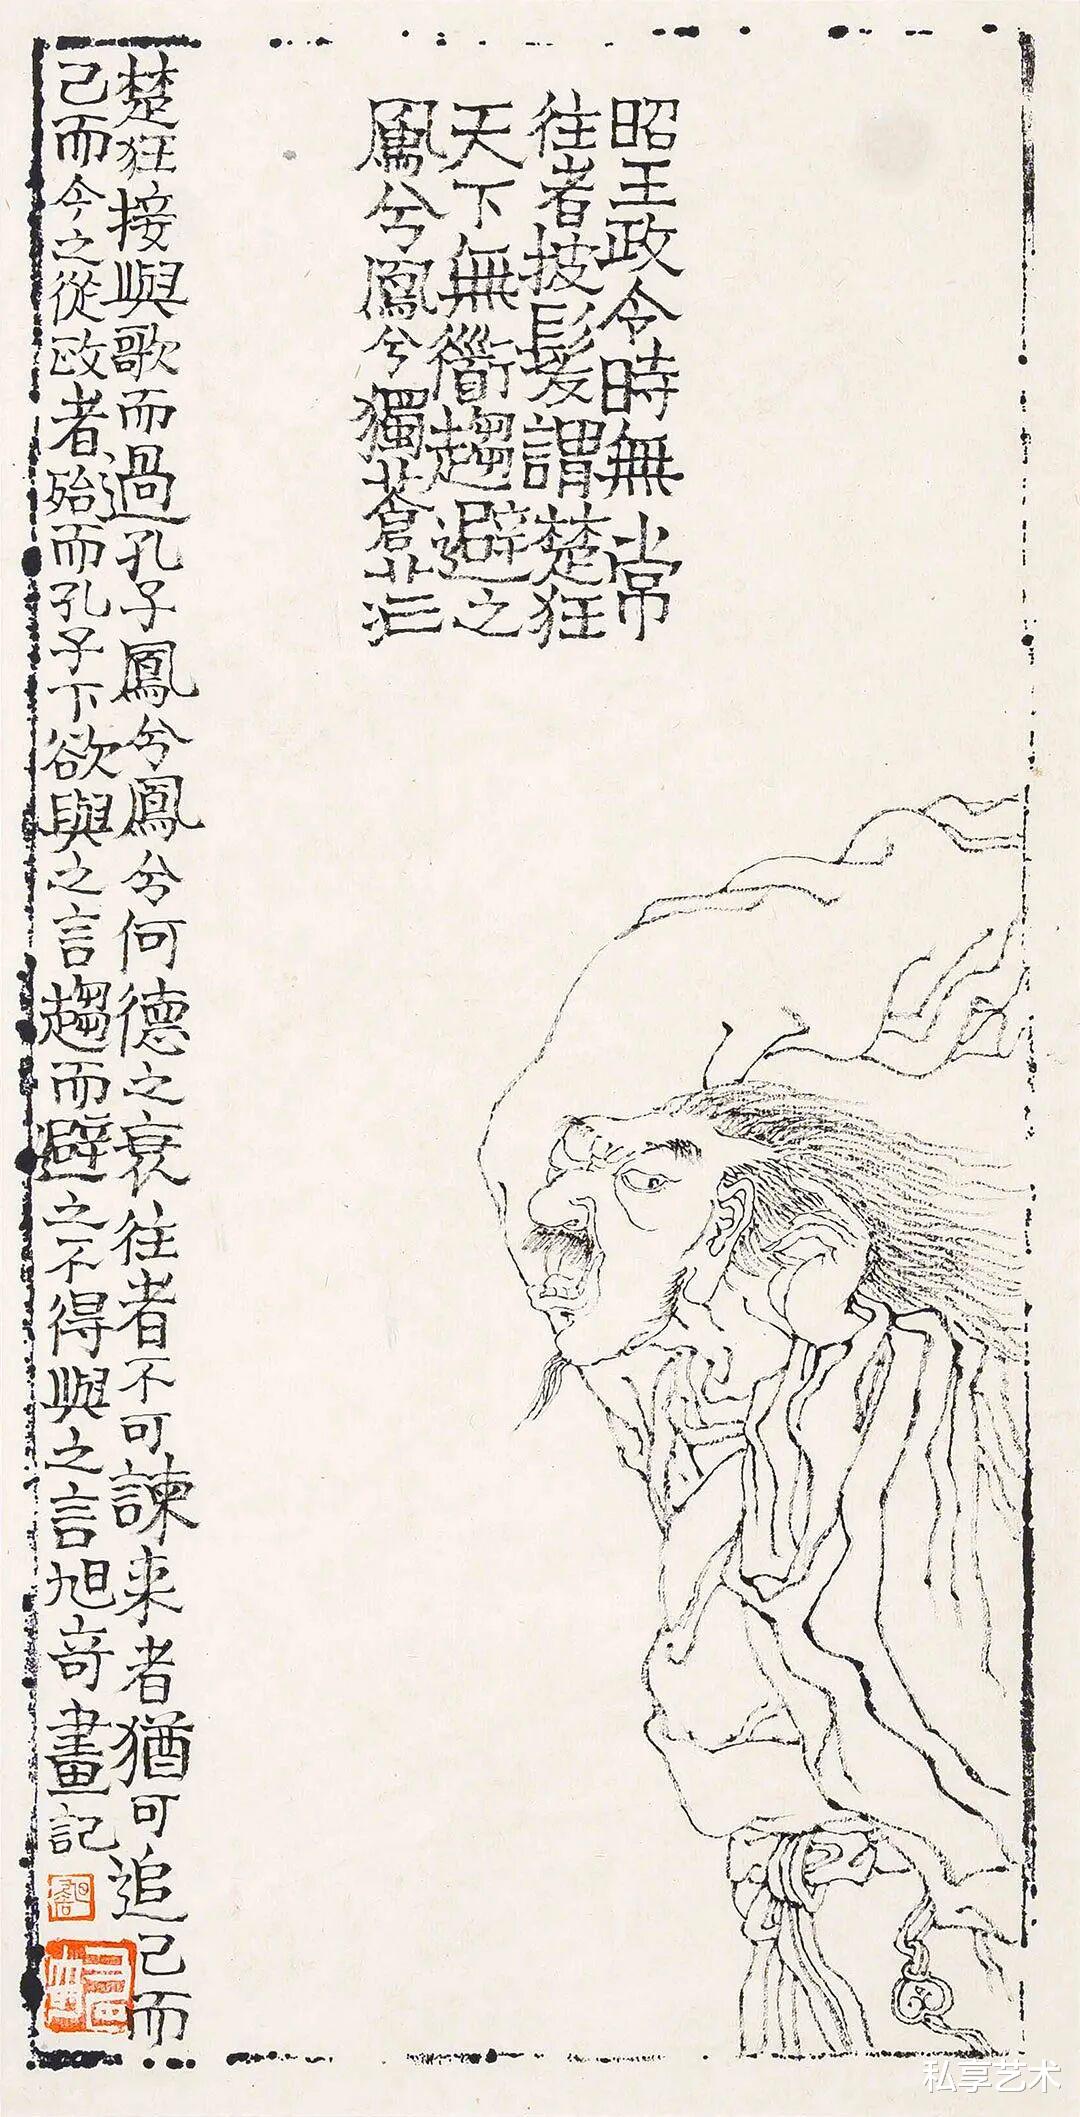 昭王政令時無常
往者披髮謂楚狂
天下無衜趨避之
鳳兮鳳兮獨蒼茫
楚狂接與歌而過孔子鳳兮鳳兮何德之衰往者不可諫来者猶可追已而
已而今之從政者殆而孔子下欲與之言趨而避之不得與之言旭奇畫記
私享艺术